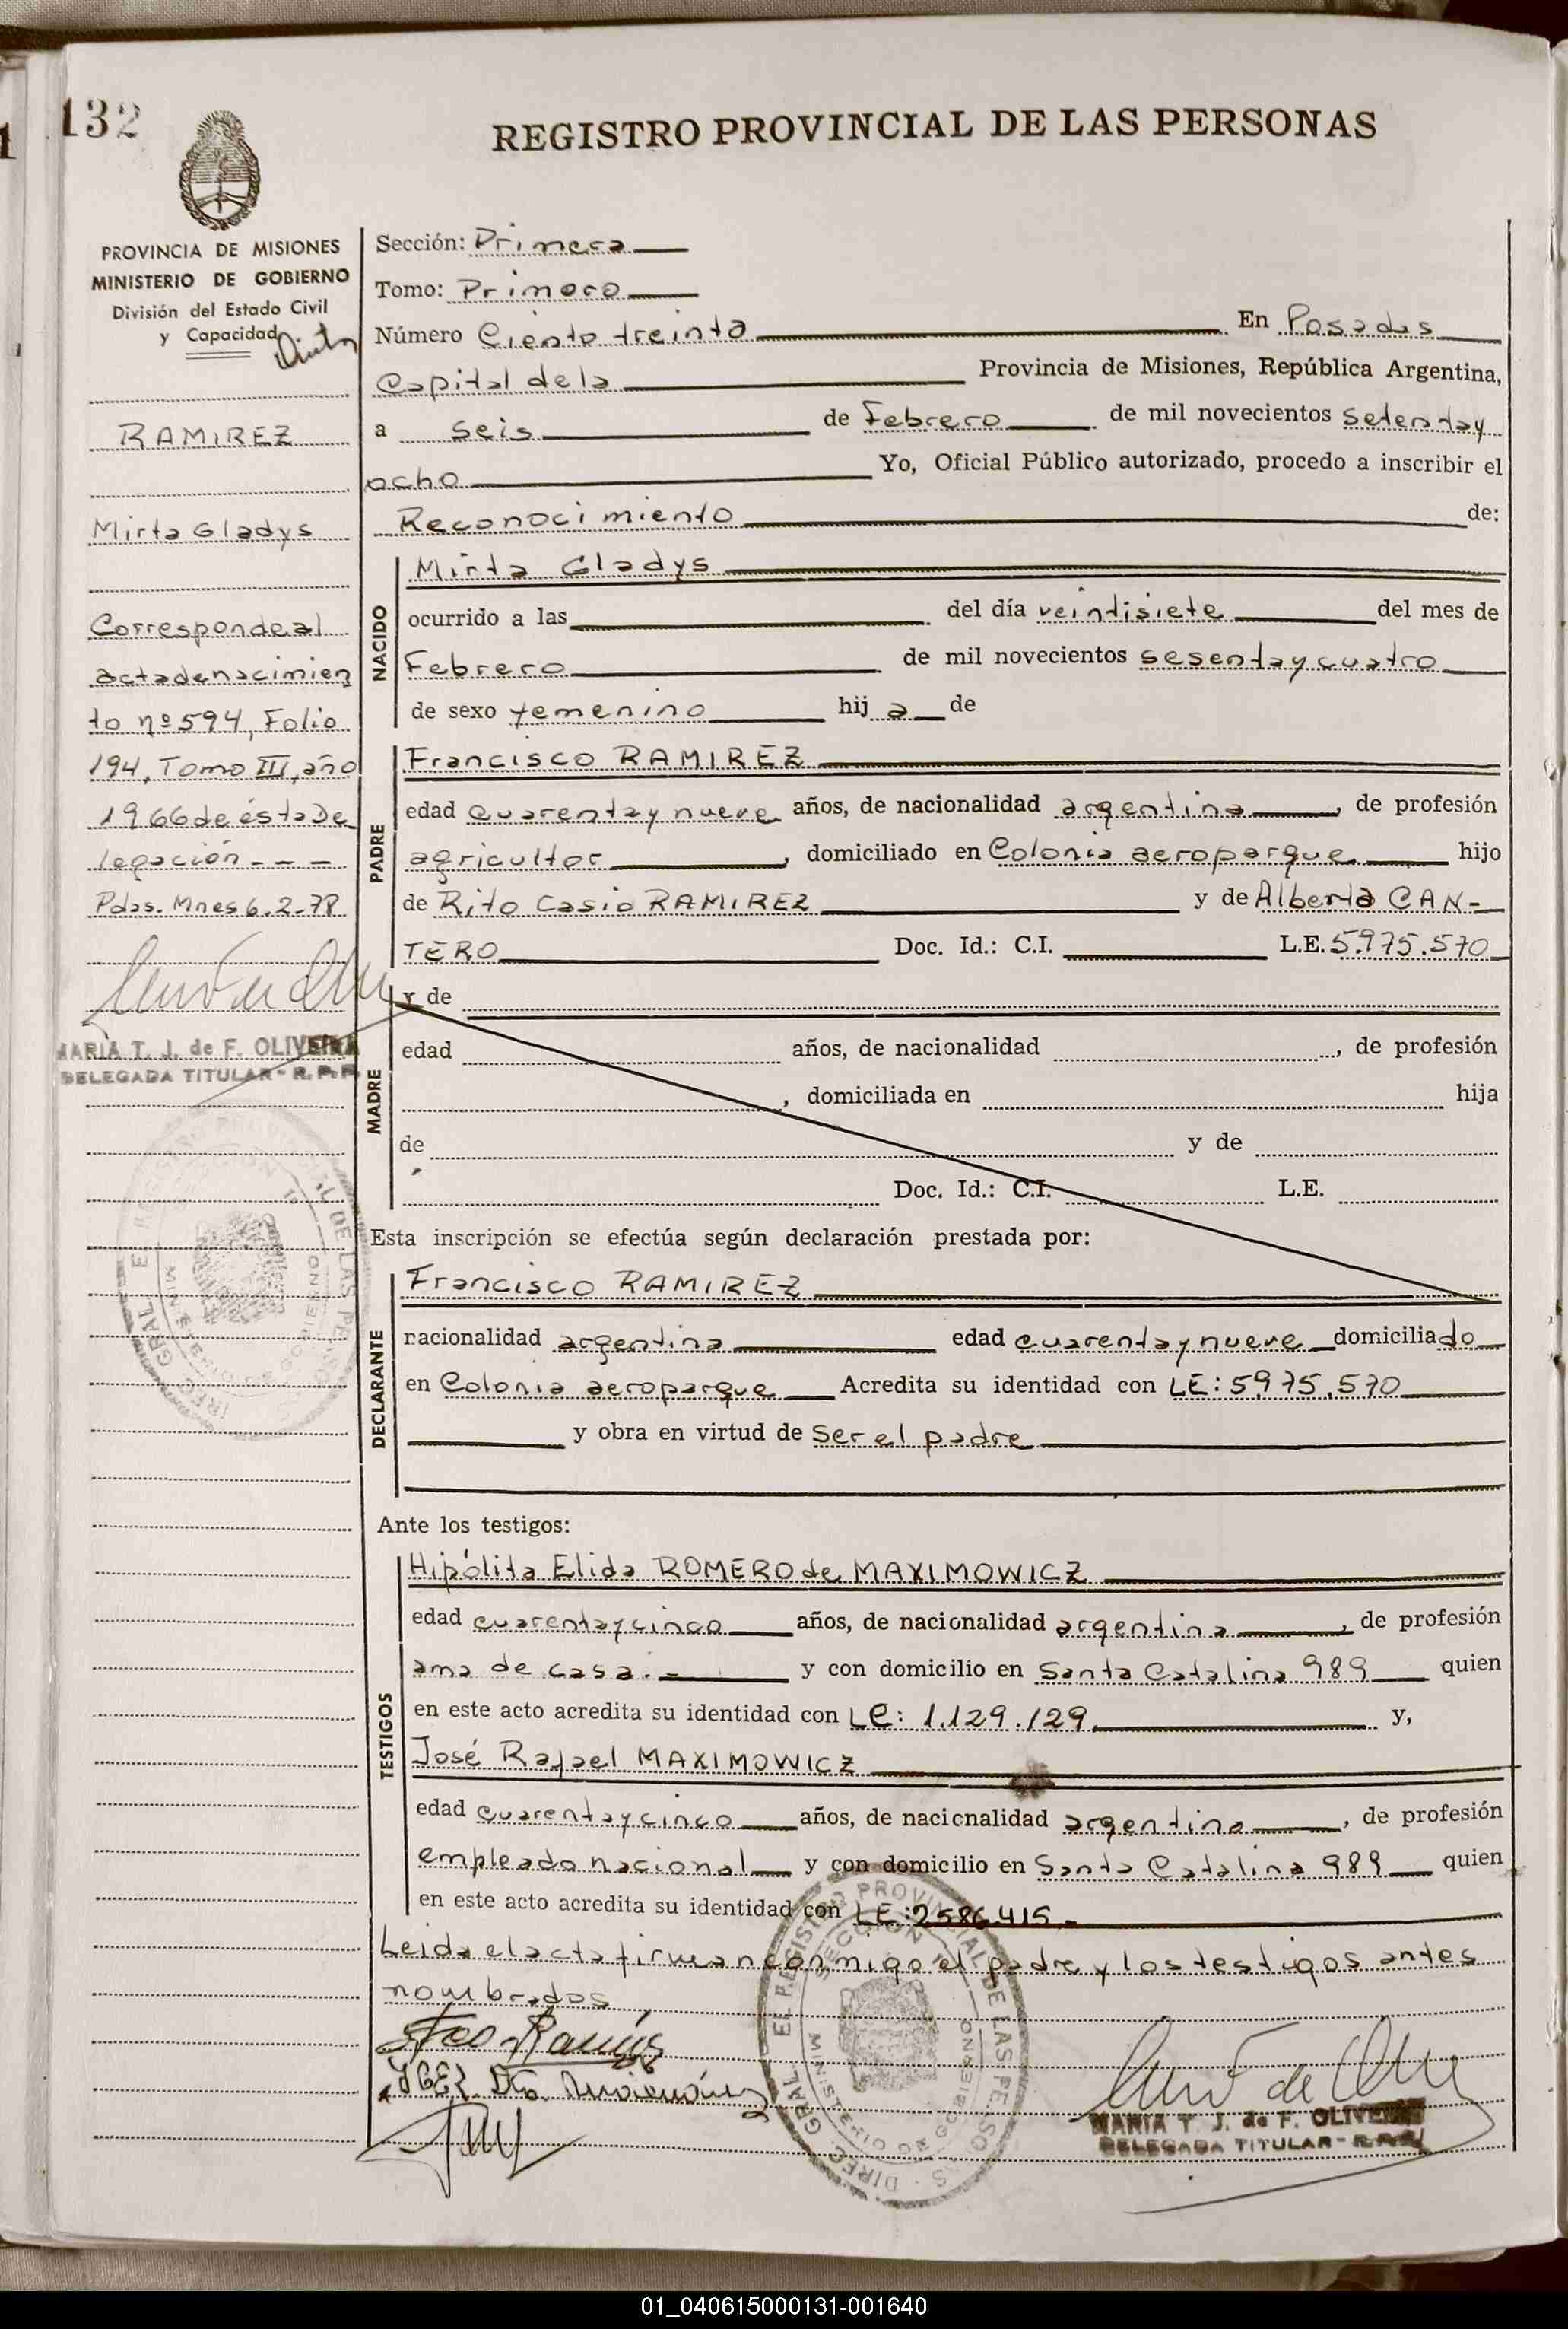 132
REGISTRO PROVINCIAL DE LAS PERSONAS
PROVINCIA DE MISIONES
MINISTERIO DE GOBIERNO
División del Estado Civil
y Capacidad
RAMIREZ
Mirta Gladys
Corresponde al
acta de nacimien
to nº 594, Folio
194, Tomo III, año
1966 de ésta De
legación - - -
Pdas. Mnes 6.2.78
MARIA T. J. de F. OLIVEIRA
DELEGADA TITULAR - R. P. P.
Sección: Primera
Tomo: Primero
Número Ciento treinta En Posadas
Capital de la Provincia de Misiones, República Argentina,
a seis de Febrero de mil novecientos setenta y
ocho Yo, Oficial Público autorizado, procedo a inscribir el
Reconocimiento de:
NACIDO
Mirta Gladys
ocurrido a las del día veintisiete del mes de
Febrero de mil novecientos sesenta y cuatro
de sexo femenino hij a de
PADRE
Francisco RAMIREZ
edad cuarenta y nueve años, de nacionalidad argentina, de profesión
agricultor, domiciliado en Colonia aeroparque hijo
de Rito Casio RAMIREZ y de Alberta CAN-
TERO Doc. Id.: C.I. L.E. 5.975.570
MADRE
y de
edad años, de nacionalidad , de profesión
, domiciliada en hija
de y de
Doc. Id.: C.I. L.E.
Esta inscripción se efectúa según declaración prestada por:
DECLARANTE
Francisco RAMIREZ
nacionalidad argentina edad cuarenta y nueve domiciliado
en Colonia aeroparque Acredita su identidad con LE: 5.975.570
y obra en virtud de ser el padre
Ante los testigos:
TESTIGOS
Hipólita Elida ROMERO de MAXIMOWICZ
edad cuarenta y cinco años, de nacionalidad argentina, de profesión
ama de casa.- y con domicilio en Santa Catalina 989 quien
en este acto acredita su identidad con LC: 1.129.129 y,
José Rafael MAXIMOWICZ
edad cuarenta y cinco años, de nacionalidad argentina, de profesión
empleado nacional y con domicilio en Santa Catalina 989 quien
en este acto acredita su identidad con LE: 2586.415-
Leida el acta firman conmigo el padre y los testigos antes
nombrados
MARIA T. J. de F. OLIVEIRA
DELEGADA TITULAR - R.P.P.
01_040615000131-001640